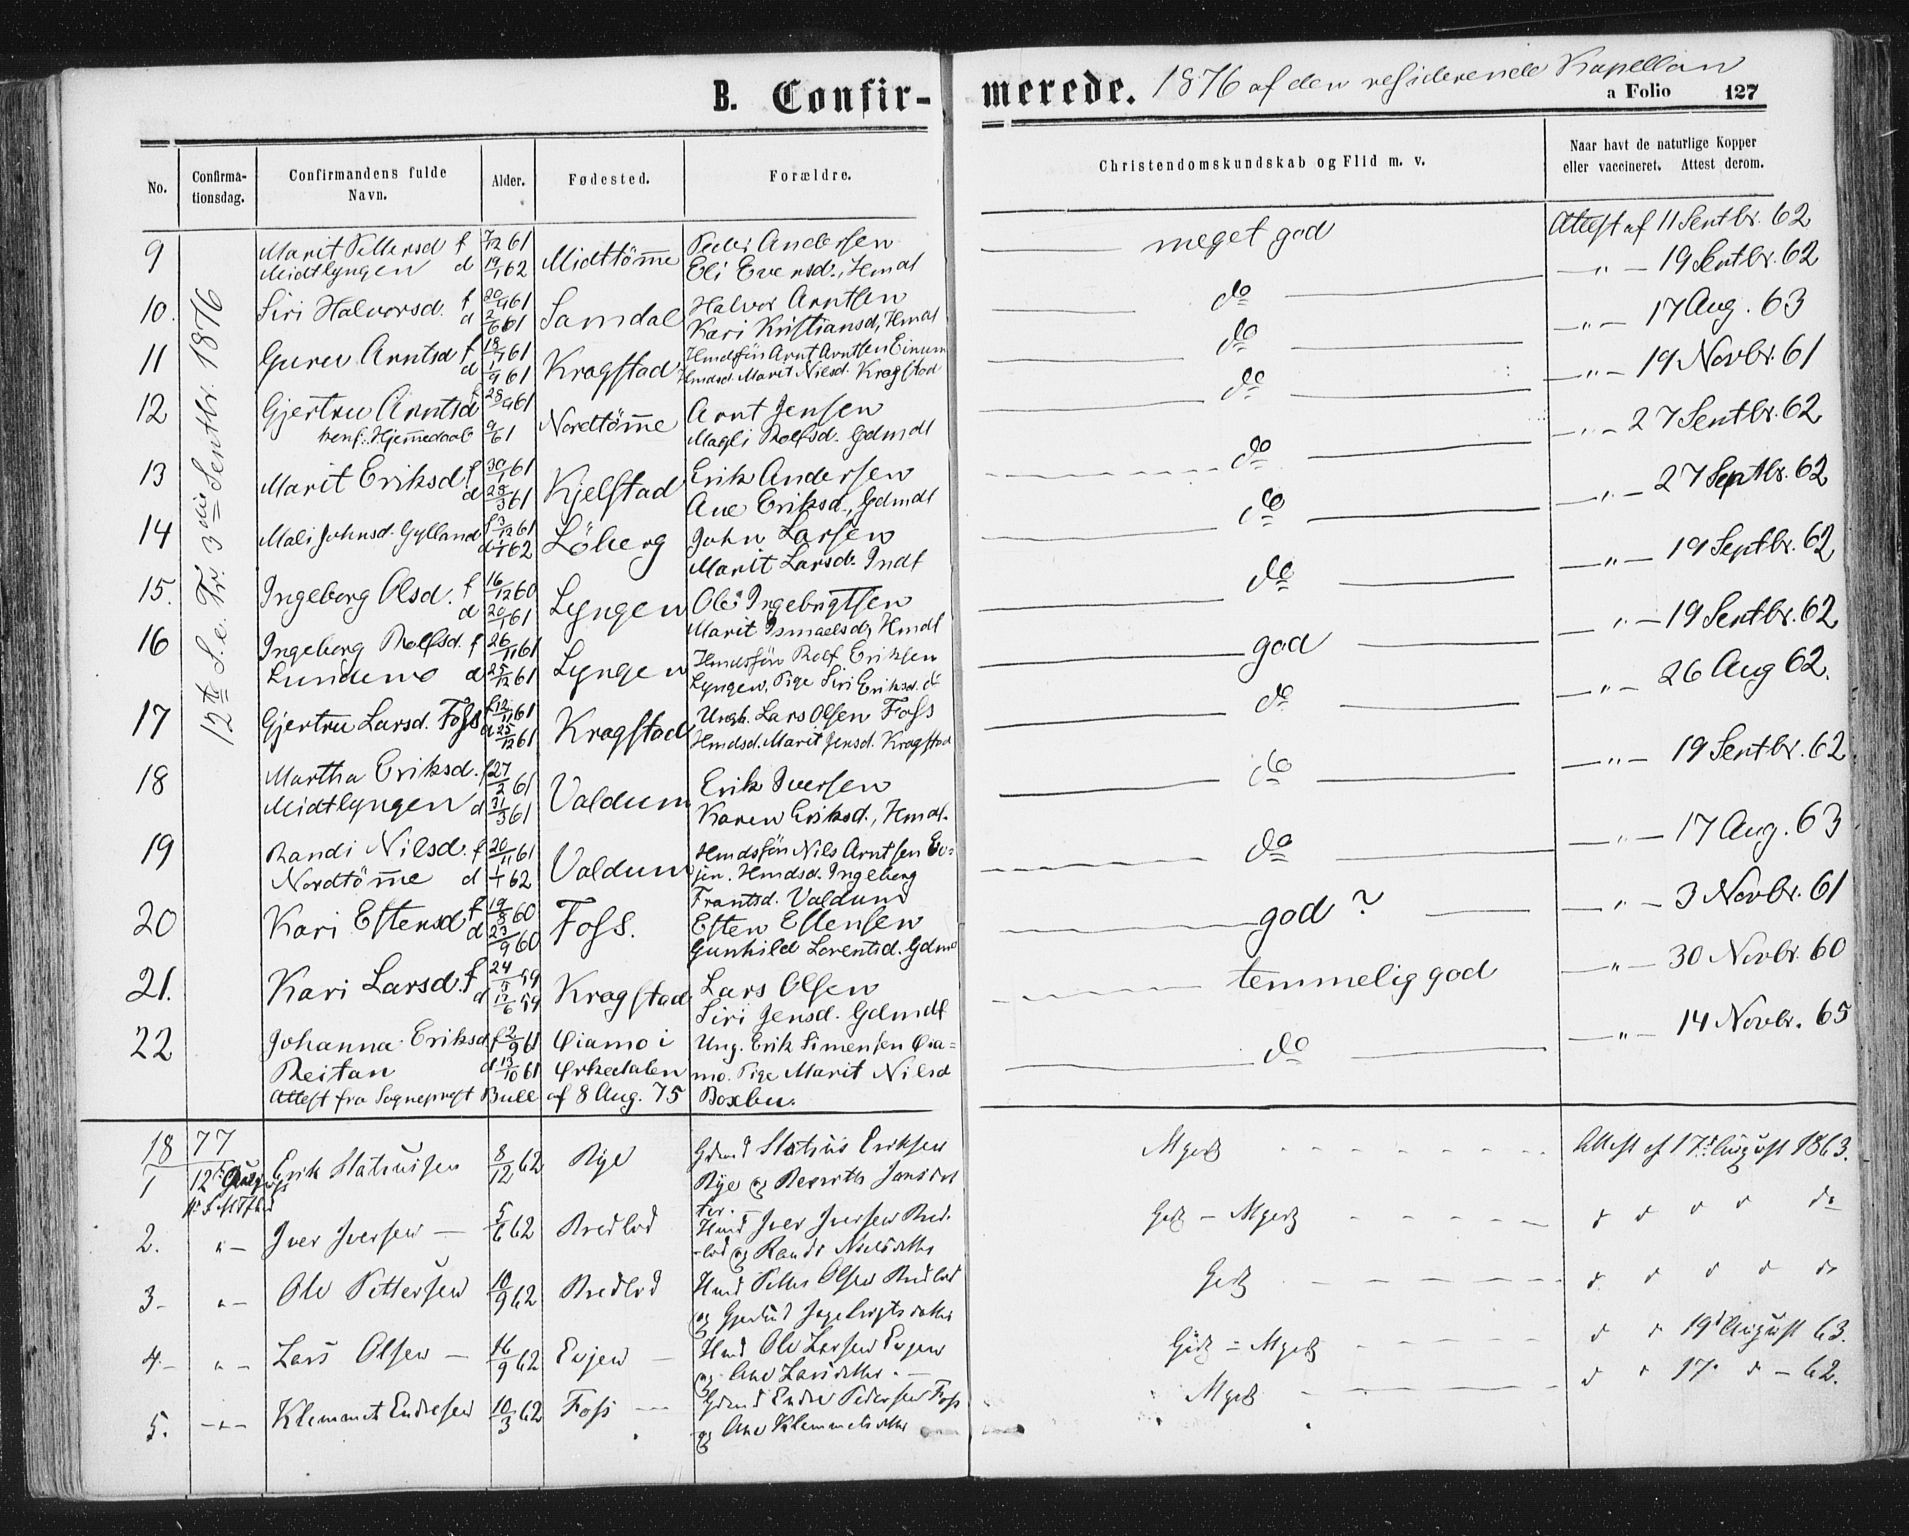 B. Confir-merede. 1876 af den residerende Kapellan
a Folio 127
No. Confirma-tionsdag. Confirmandens fulde Navn. Alder. Fødested. Forældre. Christendomskundskab og Flid m. v. Naar havt de naturlige Kopper eller vaccineret. Attest derom.
12te S. e. Tr. 3die Sentbr. 1876
9 Marit Pettersd f 7/12 61 Midttömme Peder Andersen meget god Attest af 11 Sentbr. 62
Midtlyngen d 19/1 62 Eli Evensd., Hmdf
10. Siri Halvorsd. f 20/4 61 Samdal Halvor Arntsen do — " — 19 Sentbr. 62
d 2/6 61 Kari Kristiansd, Hmdf
11 Guru Arntsd f 18/7 61 Kragstad Hmdsön Arnt Arntsen Einum do — " — 17 Aug. 63
d 1/9 61 Hmdsd. Marit Nilsd. Kragstad
12 Gjertru Arntsd f 28/4 61 Nordtömme Arnt Jensen do — " — 19 Novbr. 61
henf. Hjemmedaab 9/6 61 Magli Rolfsd. Gdmdf
13 Marit Eriksd. f 30/1 61 Kjelstad Erik Andersen do — " — 27 Sentbr. 62
d 28/3 61 Ane Eriksd., Gdmdf
14 Mali Johnsd. Gylland f 3/12 61 Löberg John Larsen do — " — 27 Septbr. 62
d 1/1 62 Marit Larsd. Indf
15. Ingeborg Olsd. f 16/12 60 Lyngen Ole Ingebrigtsen do — " — 19 Septbr. 62
d 20/1 61 Marit Ismaelsd, Hmdf
16 Ingeborg Rolfsd. f 26/11 61 Lyngen Hmdsfön Rolf Eriksen god — " — 19 Sentbr. 62
Lundemo d 25/12 61 Lyngen, Pige Siri Eriksd. do
17 Gjertru Larsd. Foss f 12/11 61 Kragstad Ungk. Lars Olsen Foss do — " — 26 Aug 62.
d 25/12 61 Hmdsd. Marit Jensd. Kragstad
18 Martha Eriksd. f 27/2 61 Valdum Erik Iversen do — " — 19 Sentbr. 62
Midtlyngen d 31/3 61 Karen Eriksd., Hmdf.
19 Randi Nilsd. f 20/11 61 Valdum Hmdsfön Nils Arntsen Ev= do — " — 17 Aug. 63
Nordtömme d 1/1 62 jen. Hmdsd. Ingeborg
Frantsd. Valdum
20 Kari Estensd f 19/8 60 Foss. Esten Estensen god ? — " — 3 Novbr. 61
d 23/9 60 Gunhild Lorentsd. Gdm
21. Kari Larsd. f 24/5 59 Kragstad Lars Olsen temmelig god — " — 30 Novbr. 60
d 12/6 59 Siri Jensd. Gdmdf
22 Johanna Eriksd f 2/9 61 Qiamo i Ung. Erik Simensen Qia= do — " — 14 Novbr. 65
Reitan d 13/10 61 Orkedalen mo. Pige Marit Nilsd
Attest fra Sogneprest Bull af 8 Aug. 75 Boxbu.
1877
1 12te Erik Statsiusen 8/12 62 Rye Gdmd Statsius Eriksen Mgodt Attest af 17de August 1863.
Rye og
2. " — Iver Iversen — 5/6 62 Bredlod Hmd Iver Iversen Bred- Godt — Mgodt do
-lod og Randi Nielsdatter
3 — " — Ole Pettersen 10/9 62 Bredlod Hmd Petter Olsen Bredlod Godt do
og Gjertrud Ingebrigtsdatter
4 — " — Lars Olsen — 16/9 62 Evjen — Hmd Ole Larsen Evjen Godt = Mgodt 19d August 63.
og Ane Larsdatter. —
5. — " — Klemmet Endresen 10/3 62 Foss — Gdmd Endre Pedersen Foss Mgodt 17. — 62.
og Ane Klemmetsdatter